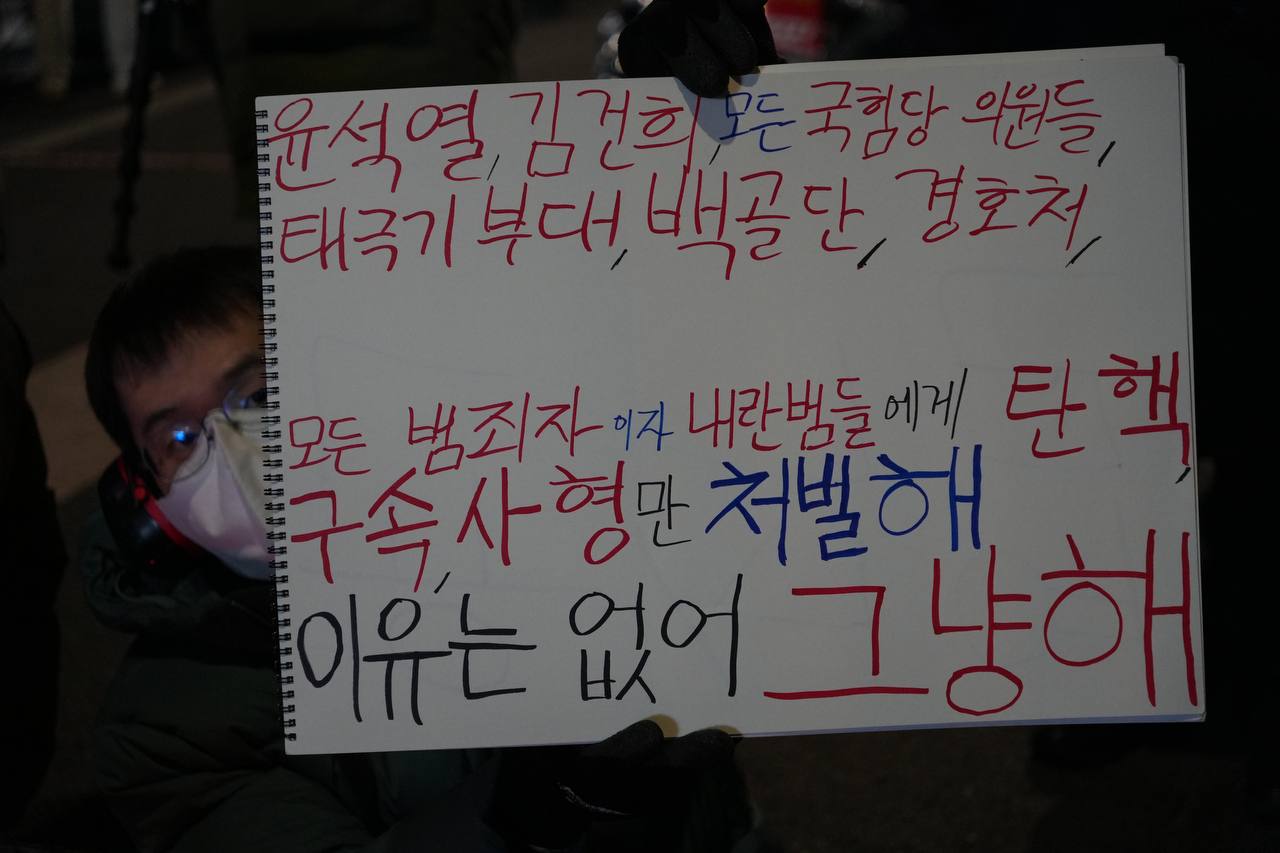 윤석열, 김건희, 모든 국힘당 의원들,
태극기 부대, 백골단, 경호처,
모든 범죄자 이자 내란범들에게 탄핵,
구속, 사형만 처벌해
이유는 없어 그냥해